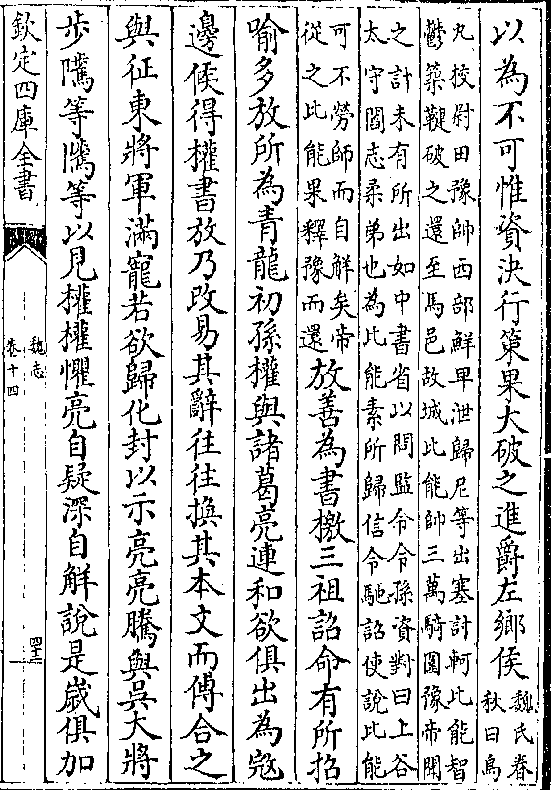 以為不可惟資決行策果大破之進爵左鄉侯魏氏春
秋曰烏
丸校尉田豫帥西部鮮卑泄歸尼等出塞討軻比能智
鬱築鞬破之還至馬邑故城比能帥三萬騎圍豫帝聞
之計未有所出如中書省以問監令令孫資對曰上谷
太守閻志柔弟也為比能素所歸信令馳詔使說比能
可不勞師而自解矣帝
從之比能果釋豫而還
放善為書檄三祖詔命有所招
喻多放所為青龍初孫權與諸葛亮連和欲俱出為寇
邊候得權書放乃改易其辭往往換其本文而傅合之
與征東將軍滿寵若欲歸化封以示亮亮騰與吳大將
步騭等騭等以見權權懼亮自疑深自解說是歲俱加
欽定四庫全書
魏志
卷十四